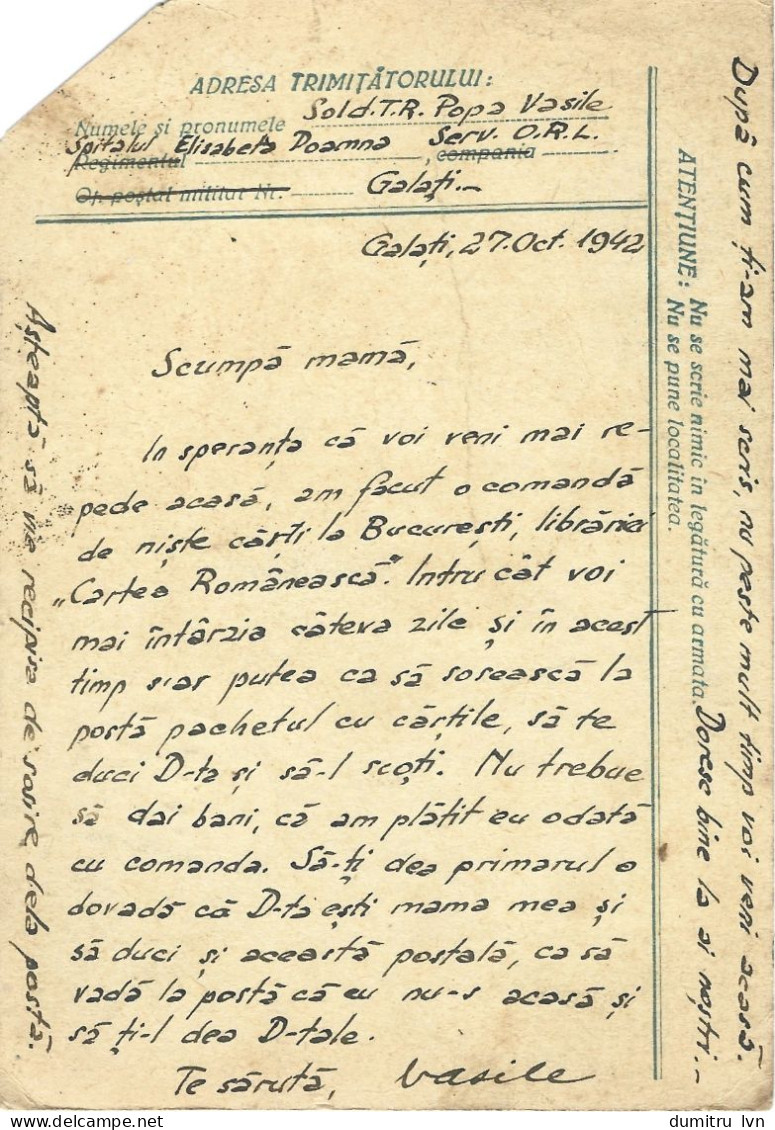 ADRESA TRIMIȚĂTORULUI:
Numele și pronumele Sold. T.R. Popa Vasile
Spitalul Elisabeta Doamna Serv. O.R.L.
Regimentul , compania
Of. poștal militar Nr. Galați.-
Galați, 27. Oct. 1942
Scumpă mamă,
In speranța că voi veni mai re-
pede acasă, am facut o comandă
de niște cărți la București, librăriei
„Cartea Românească". Intru cât voi
mai întârzia câteva zile și în acest
timp s'ar putea ca să sosească la
postă pachetul cu cărțile, să te
duci D-ta și să-l scoți. Nu trebue
să dai bani, că am plătit eu odată
cu comanda. Să-ți dea primarul o
dovadă că D-ta ești mama mea și
să duci și această postală, ca să
vadă la poștă că eu nu-s acasă și
să ți-l dea D-tale.
Te sărută, Vasile
ATENȚIUNE: Nu se scrie nimic în legătură cu armata.
Nu se pune localitatea.
După cum ți-am mai scris, nu peste mult timp voi veni acasă.
Doresc bine la ai noștri.-
Așteaptă să vie recipisa de sosire, dela postă.
dumitru lvn